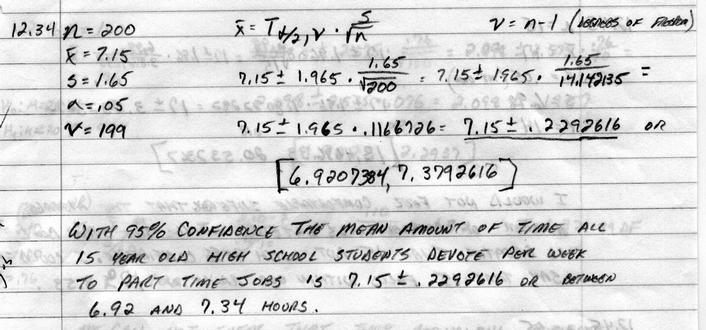 12.34 n = 200 x̄ = T α/2, ν · s/√n ν = n-1 (DEGREES OF FREEDOM)
x̄ = 7.15
s = 1.65 7.15 ± 1.965 · 1.65/√200 = 7.15 ± 1.965 · 1.65/14.142135 =
α = .05
ν = 199 7.15 ± 1.965 · .1166726 = 7.15 ± .2292616 OR
[6.9207384, 7.3792616]
WITH 95% CONFIDENCE THE MEAN AMOUNT OF TIME ALL
15 YEAR OLD HIGH SCHOOL STUDENTS DEVOTE PER WEEK
TO PART TIME JOBS IS 7.15 ± .2292616 OR BETWEEN
6.92 AND 7.34 HOURS.